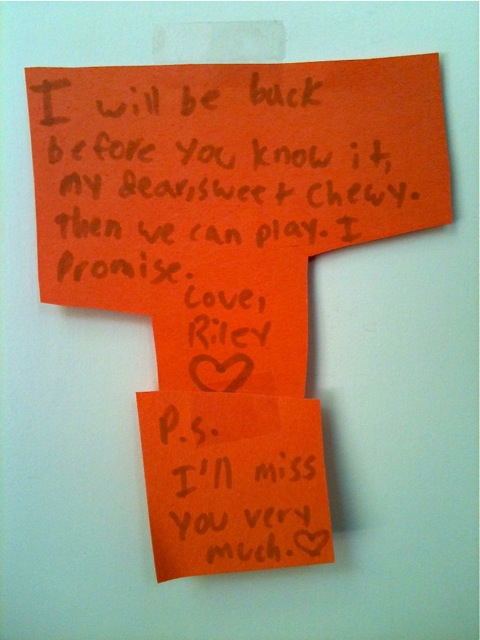 I will be back
before you know it,
my dear, sweet Chewy.
Then we can play. I
Promise.
Love,
Riley
P.s.
I'll miss
you very
much.